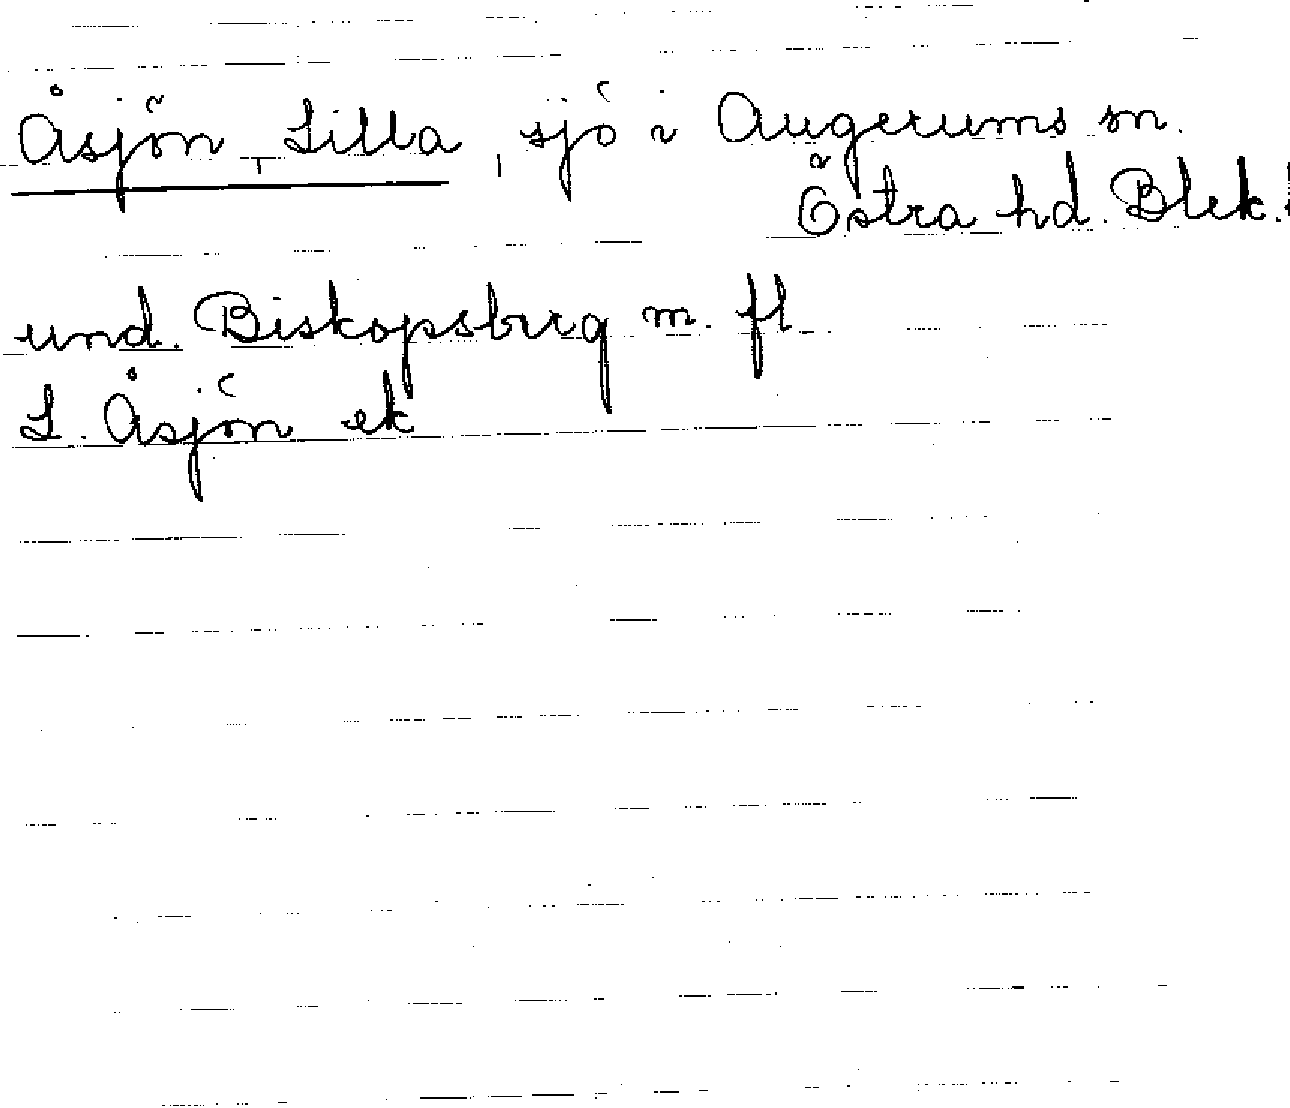 Åsjön, Lilla, sjö i Augerums sn.
Östra hd. Blek.
und. Biskopsberg m. fl.
L. Åsjön ek